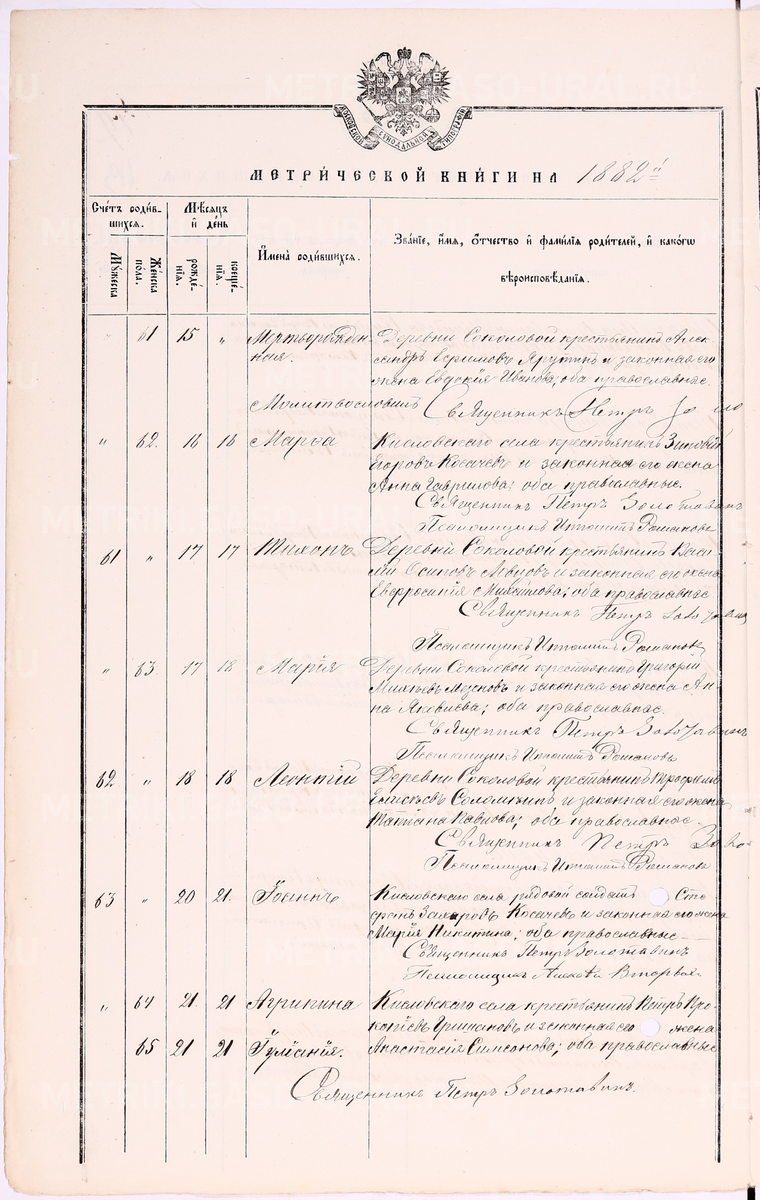 МОСКОВСКОЙ СѴНОДАЛЬНОЙ ТИПОГРАФІИ
МЕТРИ́ЧЕСКОЙ КНИ́ГИ НА 1882й
Сче́тъ роди́в-
шихся.
Мꙋ́жеска
Же́нска по́ла.
Мѣ́сяцъ
и҆ де́нь
рожде́-
нїѧ.
креще́-
нїѧ.
И҆мена̀ роди́вшихся.
Зва́нїе, и҆́мѧ, ѻ҆́тчество и҆ фами́лїѧ роди́телей, и҆ како́гѡ
вѣроисповѣ́данїѧ.
" 61 15 " Мертворожден- Деревни Соколовой крестьянинъ Алек-
ная. сандръ Ефимовъ Ярутинъ и законная его
жена Евдокія Иванова; оба православные.
Молитвословилъ Священникъ Петръ
" 62. 16 16 Марѳа Кисловскаго села крестьянинъ Зиновій
Егоровъ Косачевъ и законная его жена
Анна Гаврилова; оба православные.
Священникъ Петръ Золотавинъ
Псаломщикъ Романовъ
61 " 17 17 Тихонъ Деревни Соколовой крестьянинъ Васи-
лій Осиповъ и законная его жена
Евфросинія Михайлова; оба православные
Священникъ Петръ Золотавин
Псаломщикъ Романовъ
" 63. 17 18 Марія Деревни Соколовой крестьянинъ Григорій
и законная его жена Ан-
на Яковлева; оба православные.
Священникъ Петръ Золотавинъ
Псаломщикъ Романовъ
62 " 18 18 Леонтій Деревни Соколовой крестьянинъ
Соломкинъ и законная его жена
Татіана Павлова; оба православные.
Священникъ Петръ Золо
Псаломщикъ Романовъ
63 " 20 21. Іоаннъ Кисловскаго села рядовой солдатъ
Захаровъ Косачевъ и законная его жена
Марія Никитина; оба православные
Священникъ Петръ Золотавинъ
Псаломщикъ
" 64 21. 21 Агрипина Кисловскаго села крестьянинъ Петръ Про-
копіевъ и законная его жена
65 21 21 Іуліанія. Анастасія Симеонова; оба православные
Священникъ Петръ Золотавинъ.